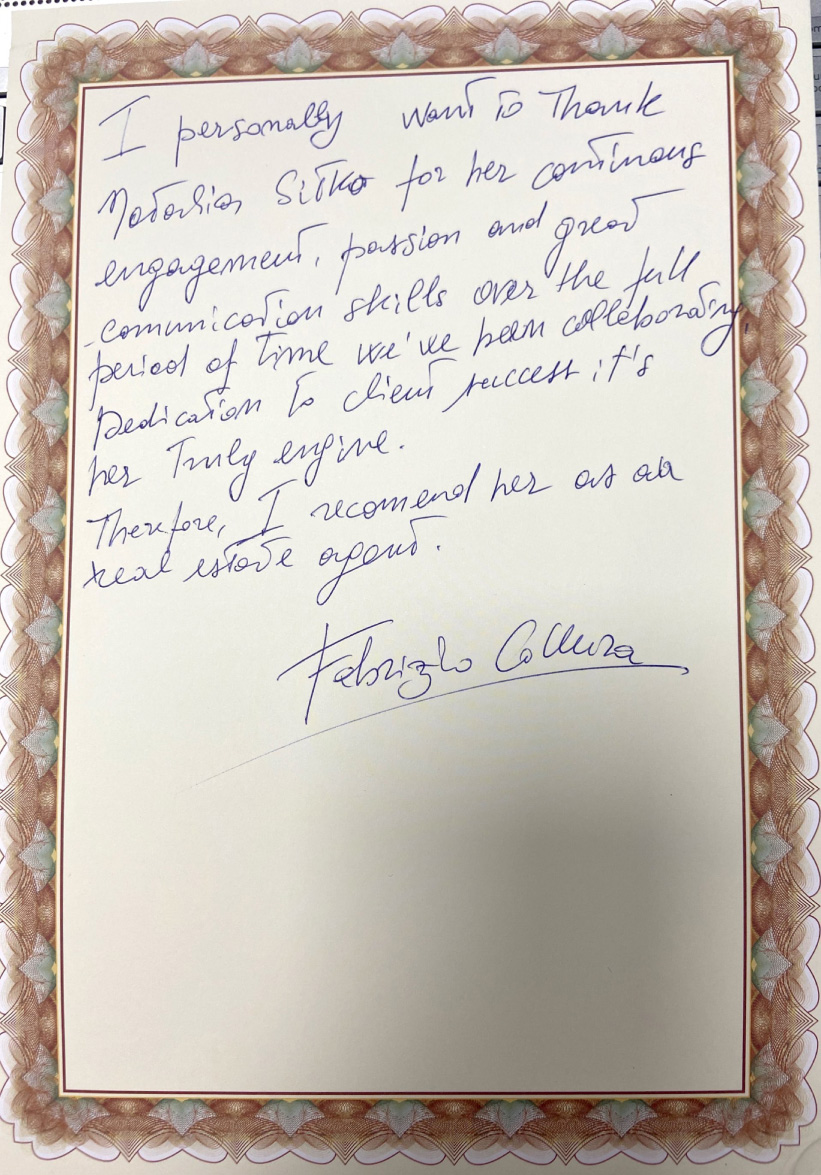 I personally want to Thank
Natalia Sitko for her continuous
engagement, passion and great
communication skills over the full
period of time we've been collaborating.
Dedication to client success it's
her Truly engine.
Therefore, I recomend her as an
real estate agent.
Fabrizio Collura